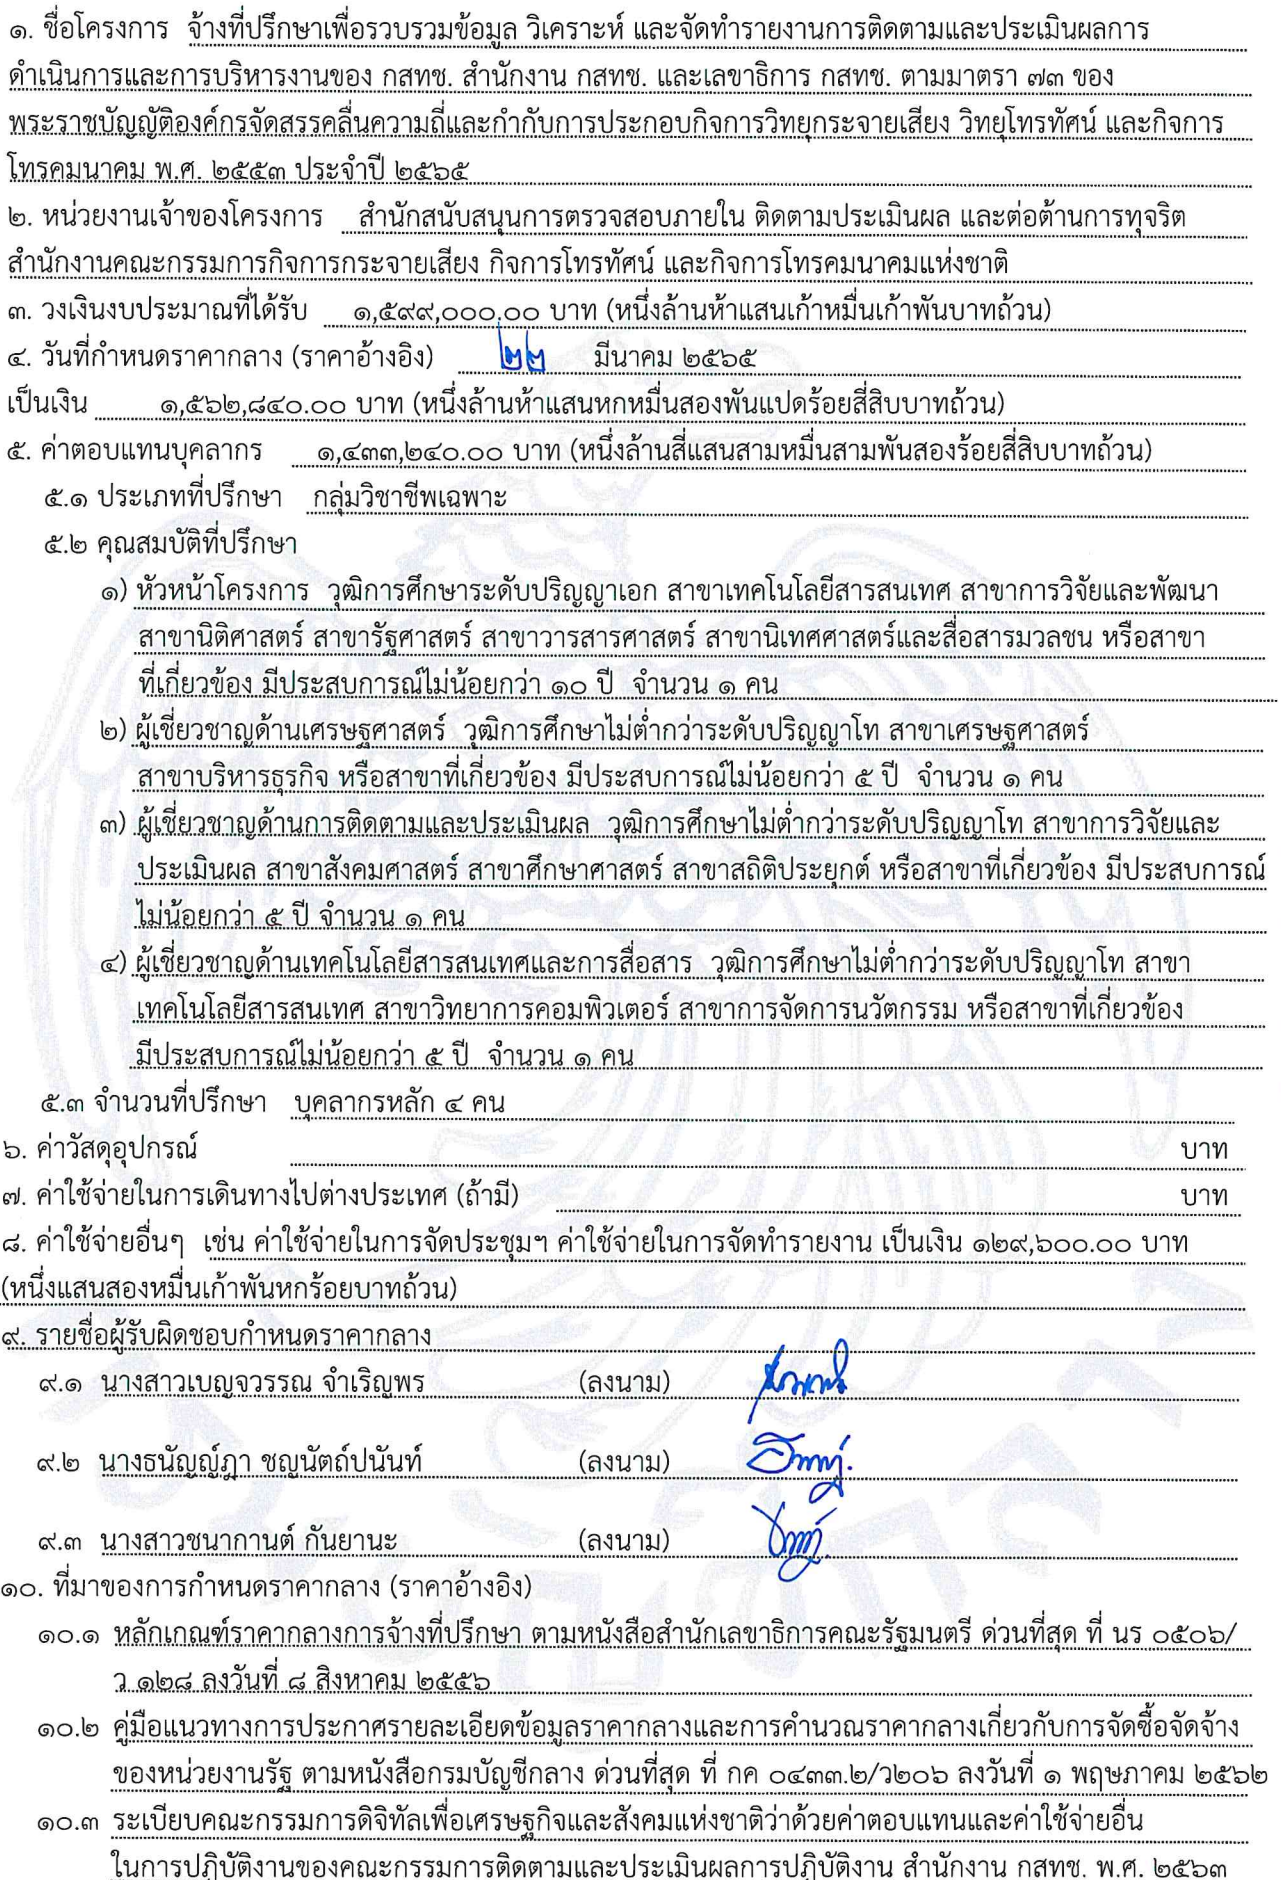 ๑. ชื่อโครงการ จ้างที่ปรึกษาเพื่อรวบรวมข้อมูล วิเคราะห์ และจัดทำรายงานการติดตามและประเมินผลการ
ดำเนินการและการบริหารงานของ กสทช. สำนักงาน กสทช. และเลขาธิการ กสทช. ตามมาตรา ๗๓ ของ
พระราชบัญญัติองค์กรจัดสรรคลื่นความถี่และกำกับการประกอบกิจการวิทยุกระจายเสียง วิทยุโทรทัศน์ และกิจการ
โทรคมนาคม พ.ศ. ๒๕๕๓ ประจำปี ๒๕๖๕
๒. หน่วยงานเจ้าของโครงการ สำนักสนับสนุนการตรวจสอบภายใน ติดตามประเมินผล และต่อต้านการทุจริต
สำนักงานคณะกรรมการกิจการกระจายเสียง กิจการโทรทัศน์ และกิจการโทรคมนาคมแห่งชาติ
๓. วงเงินงบประมาณที่ได้รับ ๑,๕๙๙,๐๐๐.๐๐ บาท (หนึ่งล้านห้าแสนเก้าหมื่นเก้าพันบาทถ้วน)
๔. วันที่กำหนดราคากลาง (ราคาอ้างอิง) ๒๒ มีนาคม ๒๕๖๕
เป็นเงิน ๑,๕๖๒,๘๔๐.๐๐ บาท (หนึ่งล้านห้าแสนหกหมื่นสองพันแปดร้อยสี่สิบบาทถ้วน)
๕. ค่าตอบแทนบุคลากร ๑,๔๓๓,๒๔๐.๐๐ บาท (หนึ่งล้านสี่แสนสามหมื่นสามพันสองร้อยสี่สิบบาทถ้วน)
๕.๑ ประเภทที่ปรึกษา กลุ่มวิชาชีพเฉพาะ
๕.๒ คุณสมบัติที่ปรึกษา
๑) หัวหน้าโครงการ วุฒิการศึกษาระดับปริญญาเอก สาขาเทคโนโลยีสารสนเทศ สาขาการวิจัยและพัฒนา
สาขานิติศาสตร์ สาขารัฐศาสตร์ สาขาวารสารศาสตร์ สาขานิเทศศาสตร์และสื่อสารมวลชน หรือสาขา
ที่เกี่ยวข้อง มีประสบการณ์ไม่น้อยกว่า ๑๐ ปี จำนวน ๑ คน
๒) ผู้เชี่ยวชาญด้านเศรษฐศาสตร์ วุฒิการศึกษาไม่ต่ำกว่าระดับปริญญาโท สาขาเศรษฐศาสตร์
สาขาบริหารธุรกิจ หรือสาขาที่เกี่ยวข้อง มีประสบการณ์ไม่น้อยกว่า ๕ ปี จำนวน ๑ คน
๓) ผู้เชี่ยวชาญด้านการติดตามและประเมินผล วุฒิการศึกษาไม่ต่ำกว่าระดับปริญญาโท สาขาการวิจัยและ
ประเมินผล สาขาสังคมศาสตร์ สาขาศึกษาศาสตร์ สาขาสถิติประยุกต์ หรือสาขาที่เกี่ยวข้อง มีประสบการณ์
ไม่น้อยกว่า ๕ ปี จำนวน ๑ คน
๔) ผู้เชี่ยวชาญด้านเทคโนโลยีสารสนเทศและการสื่อสาร วุฒิการศึกษาไม่ต่ำกว่าระดับปริญญาโท สาขา
เทคโนโลยีสารสนเทศ สาขาวิทยาการคอมพิวเตอร์ สาขาการจัดการนวัตกรรม หรือสาขาที่เกี่ยวข้อง
มีประสบการณ์ไม่น้อยกว่า ๕ ปี จำนวน ๑ คน
๕.๓ จำนวนที่ปรึกษา บุคลากรหลัก ๔ คน
๖. ค่าวัสดุอุปกรณ์ บาท
๗. ค่าใช้จ่ายในการเดินทางไปต่างประเทศ (ถ้ามี) บาท
๘. ค่าใช้จ่ายอื่นๆ เช่น ค่าใช้จ่ายในการจัดประชุมฯ ค่าใช้จ่ายในการจัดทำรายงาน เป็นเงิน ๑๒๙,๖๐๐.๐๐ บาท
(หนึ่งแสนสองหมื่นเก้าพันหกร้อยบาทถ้วน)
๙. รายชื่อผู้รับผิดชอบกำหนดราคากลาง
๙.๑ นางสาวเบญจวรรณ จำเริญพร (ลงนาม)
๙.๒ นางธนัญญ์ภา ชญนัตถ์ปนันท์ (ลงนาม)
๙.๓ นางสาวชนากานต์ กันยานะ (ลงนาม)
๑๐. ที่มาของการกำหนดราคากลาง (ราคาอ้างอิง)
๑๐.๑ หลักเกณฑ์ราคากลางการจ้างที่ปรึกษา ตามหนังสือสำนักเลขาธิการคณะรัฐมนตรี ด่วนที่สุด ที่ นร ๐๕๐๖/
ว ๑๒๘ ลงวันที่ ๘ สิงหาคม ๒๕๕๖
๑๐.๒ คู่มือแนวทางการประกาศรายละเอียดข้อมูลราคากลางและการคำนวณราคากลางเกี่ยวกับการจัดซื้อจัดจ้าง
ของหน่วยงานรัฐ ตามหนังสือกรมบัญชีกลาง ด่วนที่สุด ที่ กค ๐๔๓๓.๒/ว๒๐๖ ลงวันที่ ๑ พฤษภาคม ๒๕๖๒
๑๐.๓ ระเบียบคณะกรรมการดิจิทัลเพื่อเศรษฐกิจและสังคมแห่งชาติว่าด้วยค่าตอบแทนและค่าใช้จ่ายอื่น
ในการปฏิบัติงานของคณะกรรมการติดตามและประเมินผลการปฏิบัติงาน สำนักงาน กสทช. พ.ศ. ๒๕๖๓